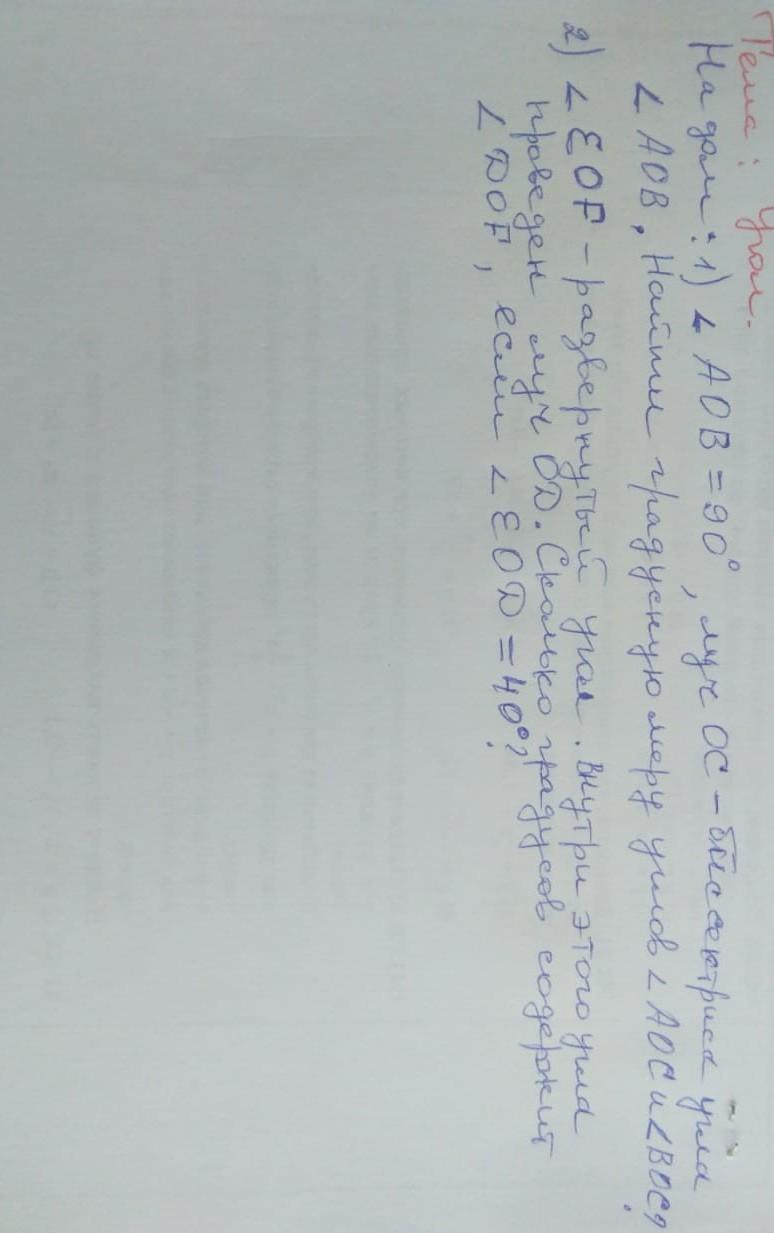 Тема: Угол.
На дом: 1) ∠AOB = 90°, луч OC – биссектриса угла
∠AOB. Найти градусную меру углов ∠AOC и ∠BOC?
2) ∠EOF – развернутый угол. Внутри этого угла
проведен луч OD. Сколько градусов содержит
∠DOF, если ∠EOD = 40°?